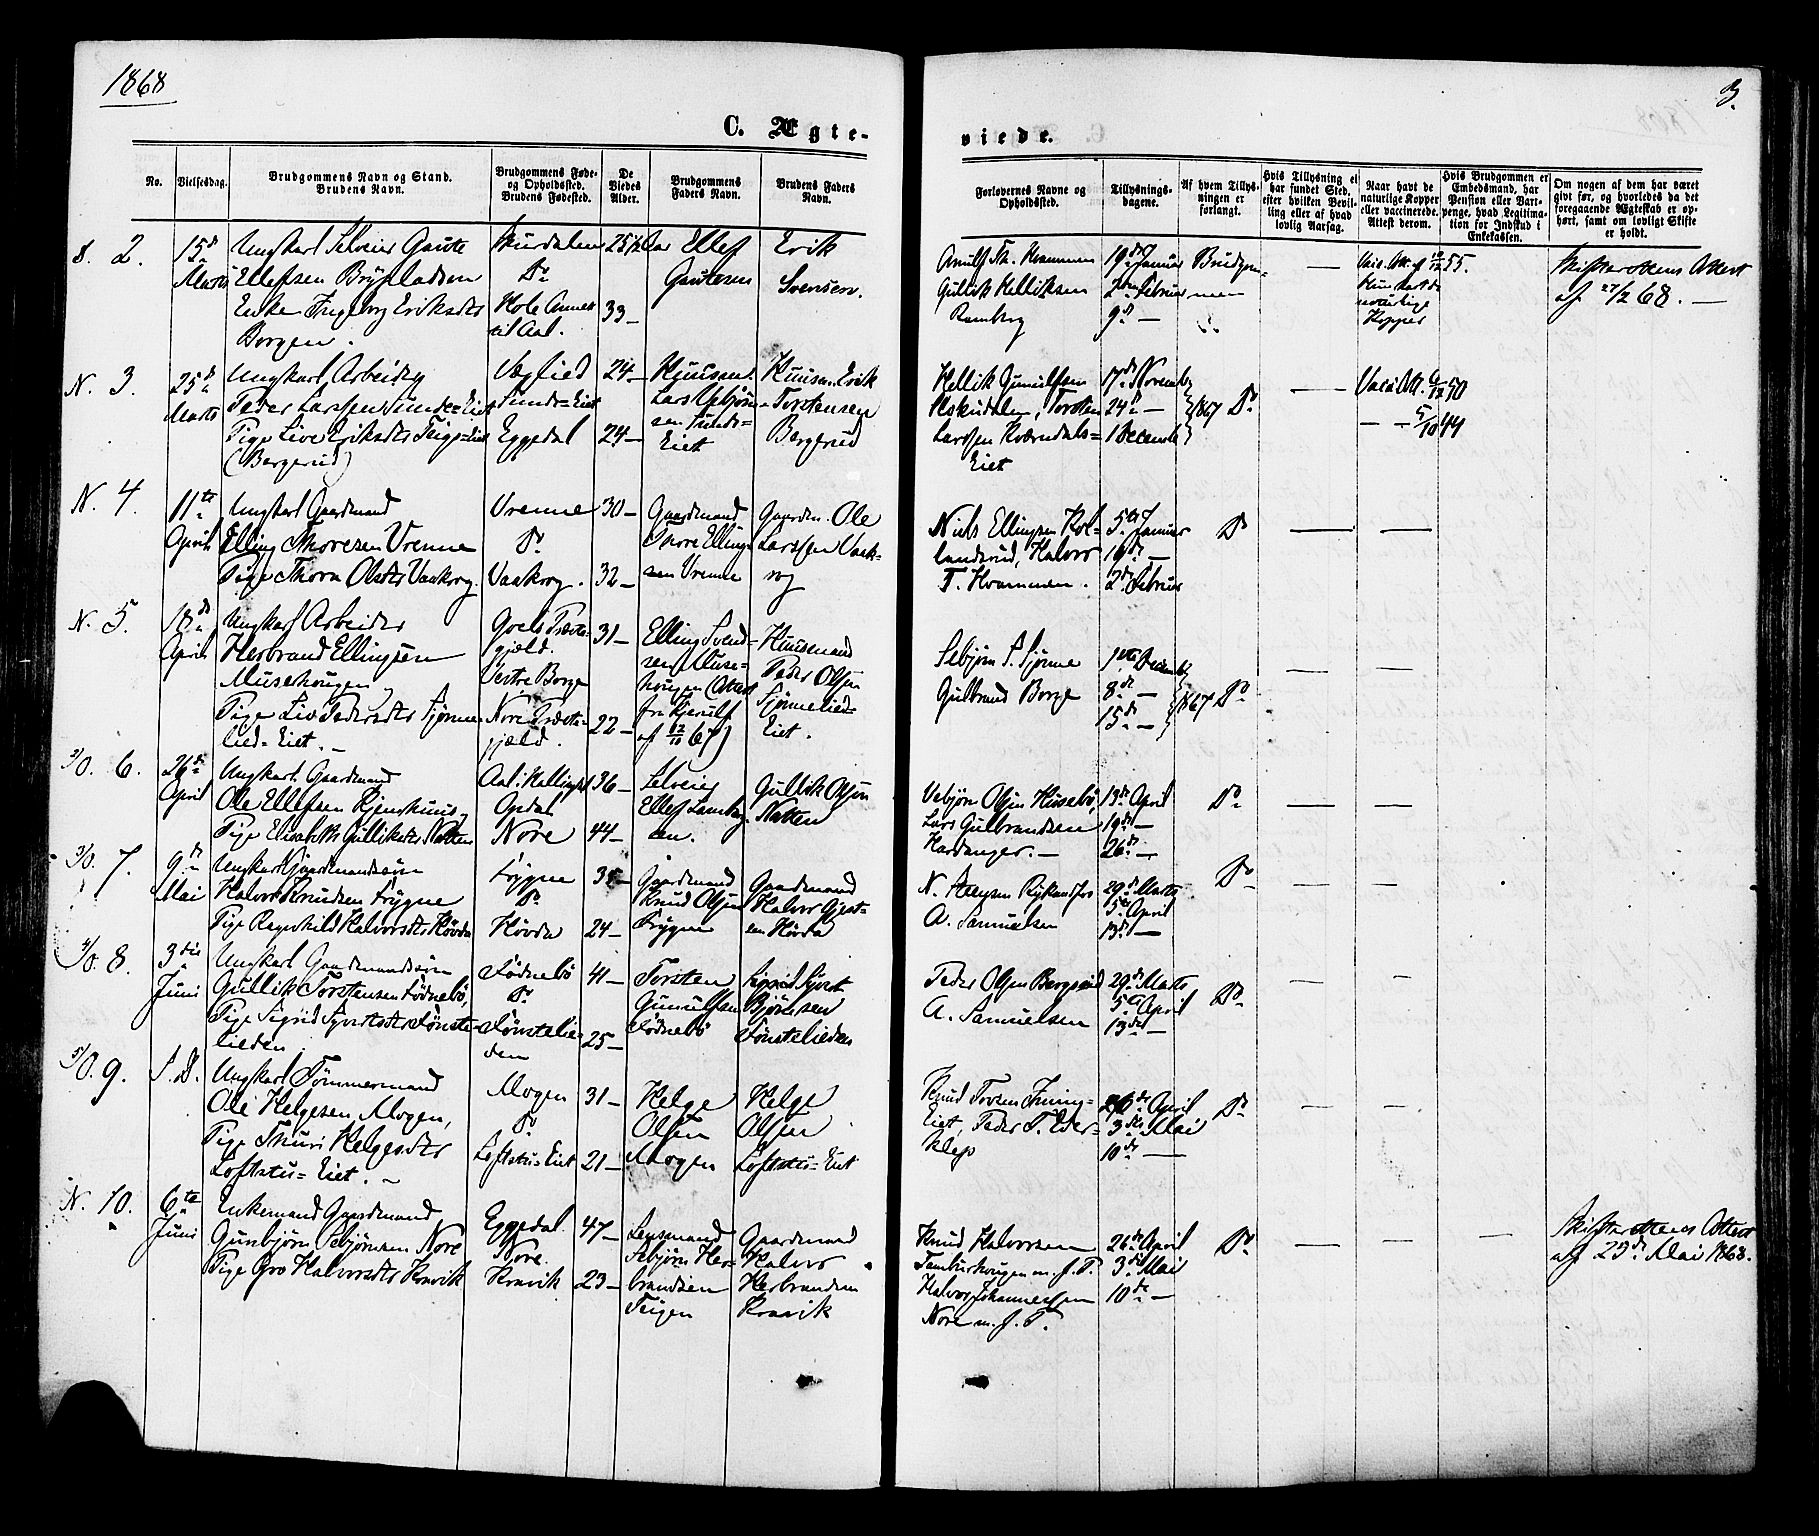 1868
3.
C. Ægte-
viede.
No.
Vielsesdag.
Brudgommens Navn og Stand.
Brudens Navn.
Brudgommens Føde-
og Opholdssted.
Brudens Fødested.
De
Viedes
Alder.
Brudgommens
Faders Navn.
Brudens Faders
Navn.
Forlovernes Navne og
Opholdssted.
Tillysnings-
dagene.
Af hvem Tillys-
ningen er
forlangt.
Hvis Tillysning ei
har fundet Sted,
efter hvilken Bevil-
ling eller af hvad
lovlig Aarsag.
Naar havt de
naturlige Kopper
eller vaccinerede.
Attest derom.
Hvis Brudgommen er
Embedsmand, har
Pension eller Vart-
penge, hvad Legitima-
tion for Indskud i
Enkekassen.
Om nogen af dem har været
gift før, og hvorledes da det
foregaaende Ægteskab er op-
hørt, samt om lovligt Skifte
er holdt.
2.
15de
Marts
Ungkarl Selveier Gaute
Ellefsen
Enke Ingeborg Eriksdtr
Borgen.
Skurdalen
Do
Hole Annex
til Aal.
25½ Aar
33 —
Ellef
Gautesen
Erik
Svensen.
Gullik Helliksen
Ramberg
19de Januar
2den Februar
9de —
Brudgom-
men
—
55.
naturlige
Kopper
Skifterettens Attest
af 27/2 68. —
N. 3.
25de
Marts
Ungkarl Arbeider
Peder Larssen Sunde-Eiet
Pige Live Eriksdtr Teige-Eiet
(Bergerud)
Veglied
Sunde-Eiet
Eggedal
24 —
24 —
Huusm.
Lars Asbjørn-
sen Sunde-
Eiet
Huusm. Erik
Torstensen
Bergerud
Hellik Gunulfsen
Skurdalen, Torsten
Larssen Kværndals-
Eiet
17de Novemb
24de —
1 Decemb
1867
Do
—
Vacc. Att. 50
— — 5/10 44
N. 4.
11te
April
Ungkarl Gaardmand
Elling Thoresen Vrenne
Pige Thora Olsdtr Vaakorg.
Vrenne
Do
Vaakorg.
30 —
32 —
Gaardmand
Thore Elling-
sen Vrenne
Gaardm. Ole
Larssen Vaak-
rog
Niels Ellingsen Kol-
landsrud, Halvor
T. Hvammen.
5te Januar
16de —
2den Februar
Do
—
—
N. 5.
18de
April
Ungkarl Arbeider
Herbrand Ellingsen
Musehougen,
Pige Liv Pedersdtr Sjønne-
lied-Eiet. —
Goels Præste-
gjæld.
Vestre Borge
Nore Præste-
gjæld.
31 —
22 —
Elling Svend-
sen Muse-
hougen (Attest
af 12/10 67)
Huusmand
Peder Olsen
Sjønnelied-
Eiet.
Sebjørn S. Sjønne
Gulbrand Borge
1ste Decemb
8de —
15de —
1867
Do
—
—
6.
26de
April
Ungkarl Gaardmand
Ole Ellefsen
Pige Elisabeth Gulliksdtr Natten
Aal i Hallingdal
Opdal
Nore
36 —
44 —
Selveier
Ellef
sen.
Gullik Olsen
Natten
Vebjørn Olsen Husebø,
Lars Gulbrandsen
Hardanger. —
13de April
19de —
26de —
Do
—
—
7.
9de
Mai
Ungkarl Gaardmandssøn
Halvor Knudsen Frygne
Pige Ragnhild Halvorsdtr Hövda
Frygne
Do
Hövda
35 —
24 —
Gaardmand
Knud Olsen
Frygne
Gaardmand
Halvor Gjest-
sen Hövda
A. Samuelsen
29de Marts
5te April
13de —
Do
—
—
8.
3die
Juni
Ungkarl Gaardmandssøn
Gullik Torstensen Födnebö,
Pige Sigrid Syvertsdtr Tönste-
lieden
Födnebö
Do
Tönstelie-
den
41 —
25 —
Torsten
Gunulfsen
Födnebö
Björnsen
Tönstelieden
Peder Olsen Bergerud
A. Samuelsen
29de Marts
5te April
13de —
Do
—
—
9.
S. D.
Ungkarl Tömmermand
Ole Helgesen Mogen,
Pige Thuri Helgesdtr
Loftstu-Eiet. —
Mogen
Do
Loftstu-Eiet
31 —
21 —
Helge
Olsen
Mogen
Helge
Olsen
Loftstu-Eiet
Knud Torsen
Eiet, Peder T. Eder-
klep
26de April
3die Mai
10de —
Do
—
—
N. 10.
6te
Juni
Enkemand Gaardmand
Gunbjørn Sebjørnsen Nore
Pige Gro Halvorsdtr Kravik
Eggedal
Nore.
Kravik
47 —
23 —
Lensmand
Sebjørn Her-
brandsen
Teigen
Gaardmand
Halvor
Herbrandsen
Kravik
Knud Halvorsen
Tamburhougen m. f. P.
Halvor Johannessen
Nore m. f. P.
26de April
3die Mai
10de —
Do
—
—
—
Skifterettens Attest
af 29de Mai 1868.